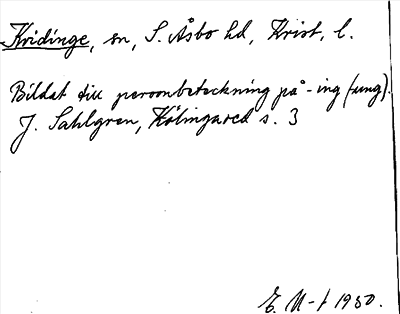 Kvidinge, sn, S. Åsbo hd, Krist. l.
Bildat till personbeteckning på -ing (-ung).
J. Sahlgren, Kölingared s. 3
E. M-t 1930.